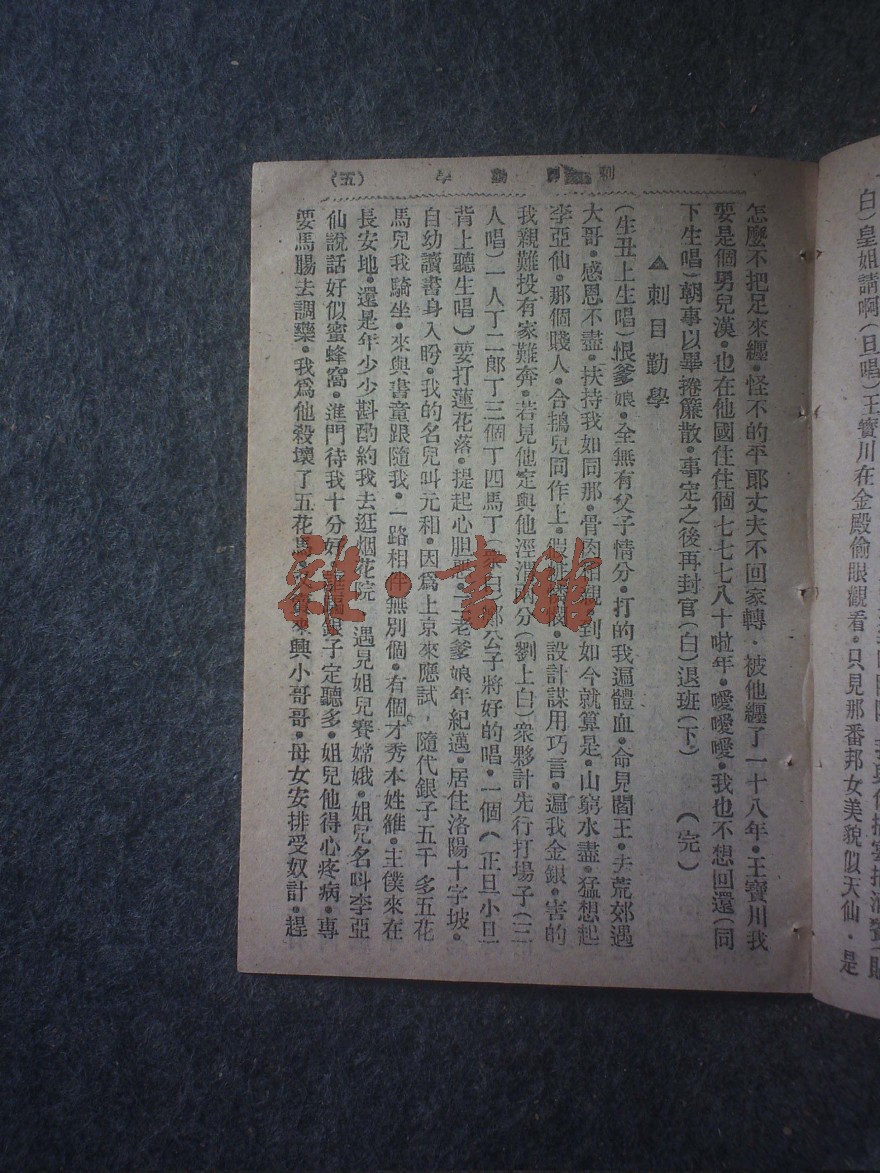 白）皇姐請啊（旦唱）王寶川在金殿偷眼觀看·只見那番邦女美貌似天仙·是
勤學
（五）
怎麼不把足來纏·怪不的平郎丈夫不回家轉·被他纏了一十八年·王寶川我
要是個男兒漢·也在他國住住個七七七八十啦年·噯噯噯·我也不想回還（同
下生唱）朝事以畢捲簾散·事定之後再封官（白）退班（下）　（完）
▲刺目勤學
（生丑上生唱）恨爹娘·全無有父子情分·打的我遍體血·命見閻王·去荒郊遇
大哥·感恩不盡·扶持我如同那·骨肉相親·到如今就算是·山窮水盡·猛想起
李亞仙·那個賤人·合鴇兒同作上·假·設計謀用巧言·遍我金銀·害的
我親難投有家難奔·若見他定與他涇渭分（劉上白）衆夥計先行打場子（三
人唱）一人丁二郎丁三個丁四馬丁（白）鄭公子將好的唱·一個（正旦小旦
背上聽生唱）要打蓮花落·提起心胆·二老爹娘年紀邁·居住洛陽十字坡·
自幼讀書身入盼·我的名兒叫元和·因爲上京來應試·隨代銀子五千多五花
馬兒我騎坐·來與書童跟隨我·一路相伴無別個·有個才秀本姓維·主僕來在
長安地·還是年少少斟酌約我去逛烟花院·遇見姐兒賽嫦娥·姐兒名叫李亞
仙說話好似蜜蜂窩·進門待我十分好·銀子定聽多·姐兒他得心疼病·專
要馬腸去調藥·我爲他殺壞了五花馬·來興小哥哥·母女安排受奴計·趕